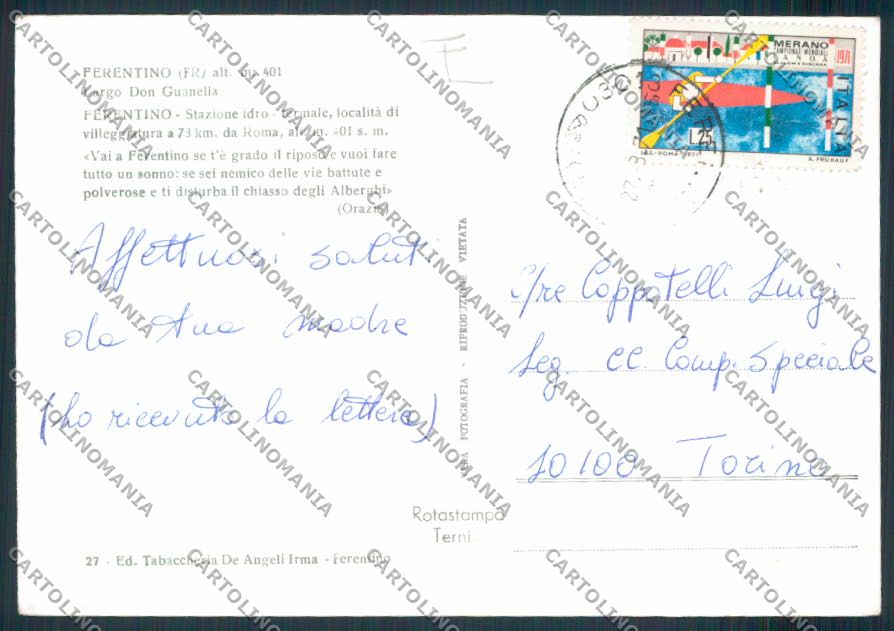 FERENTINO (FR) alt. m. 401
Largo Don Guanella
FERENTINO - Stazione idro - termale, località di
villeggiatura a 73 km. da Roma, alt. m. 401 s. m.
«Vai a Ferentino se t'è grado il riposo e vuoi fare
tutto un sonno: se sei nemico delle vie battute e
polverose e ti disturba il chiasso degli Alberghi»
(Orazio)
Affettuosi saluti
da tua madre
(ho ricevuto la lettera)
27 - Ed. Tabaccheria De Angeli Irma - Ferentino
VERA FOTOGRAFIA - RIPRODUZIONE VIETATA
Rotastampa
Terni
MERANO
CAMPIONATI MONDIALI
CANOA
SLALOM E DISCESA
1971
ITALIA
L.25
I.P.S.-ROMA-1971
A. FRUHAUF
C/re Coppotelli Luigi
Leg. CC. Comp. Speciale
10100 Torino
CARTOLINOMANIA